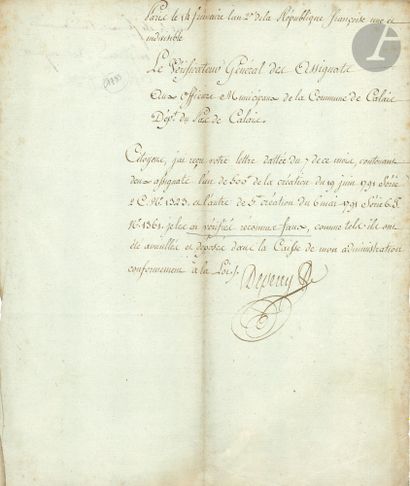 Paris le 14 frimaire l'an 2e de la République françoise une et
indivisible
Le Vérificateur Général des Assignats
Aux Officiers Municipaux de la Commune de Calais
Dépt. du Pas de Calais.
Citoyens, j'ai reçu votre lettre dattée du 7 de ce mois, contenant
deux assignats l'un de 500 de la création du 19 juin 1791 Série
2 C. No. 1323. et l'autre de 5 création du 6 mai 1791 Série 6 F.
No. 1361. je les ai vérifié reconnus faux, comme tels ils ont
été annullés et déposés dans la Caisse de mon administration
conformement à la Loi
Deperey